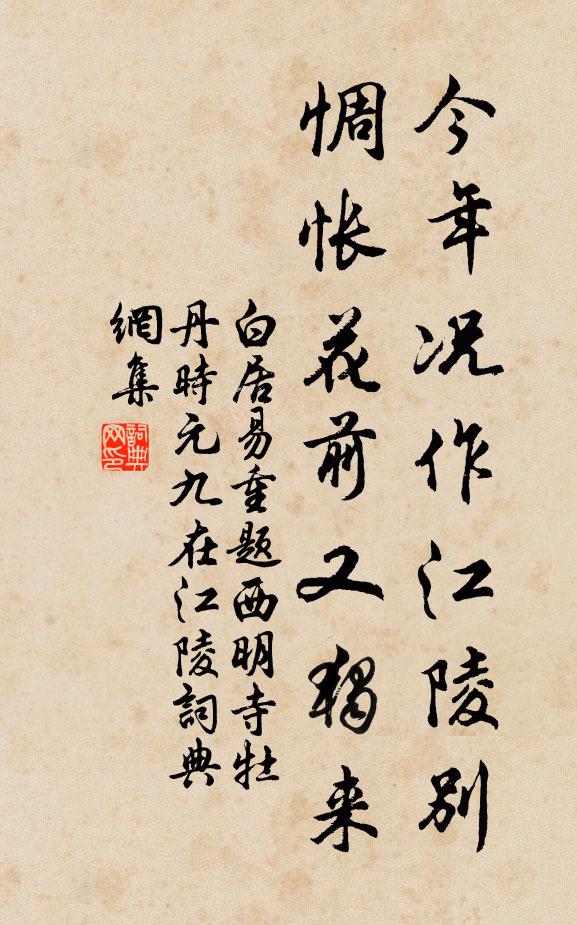 今年况作江陵别
惆怅花前又独来
白居易重题西明寺牡
丹時元九在江陵詞典
網集
詞典
网印